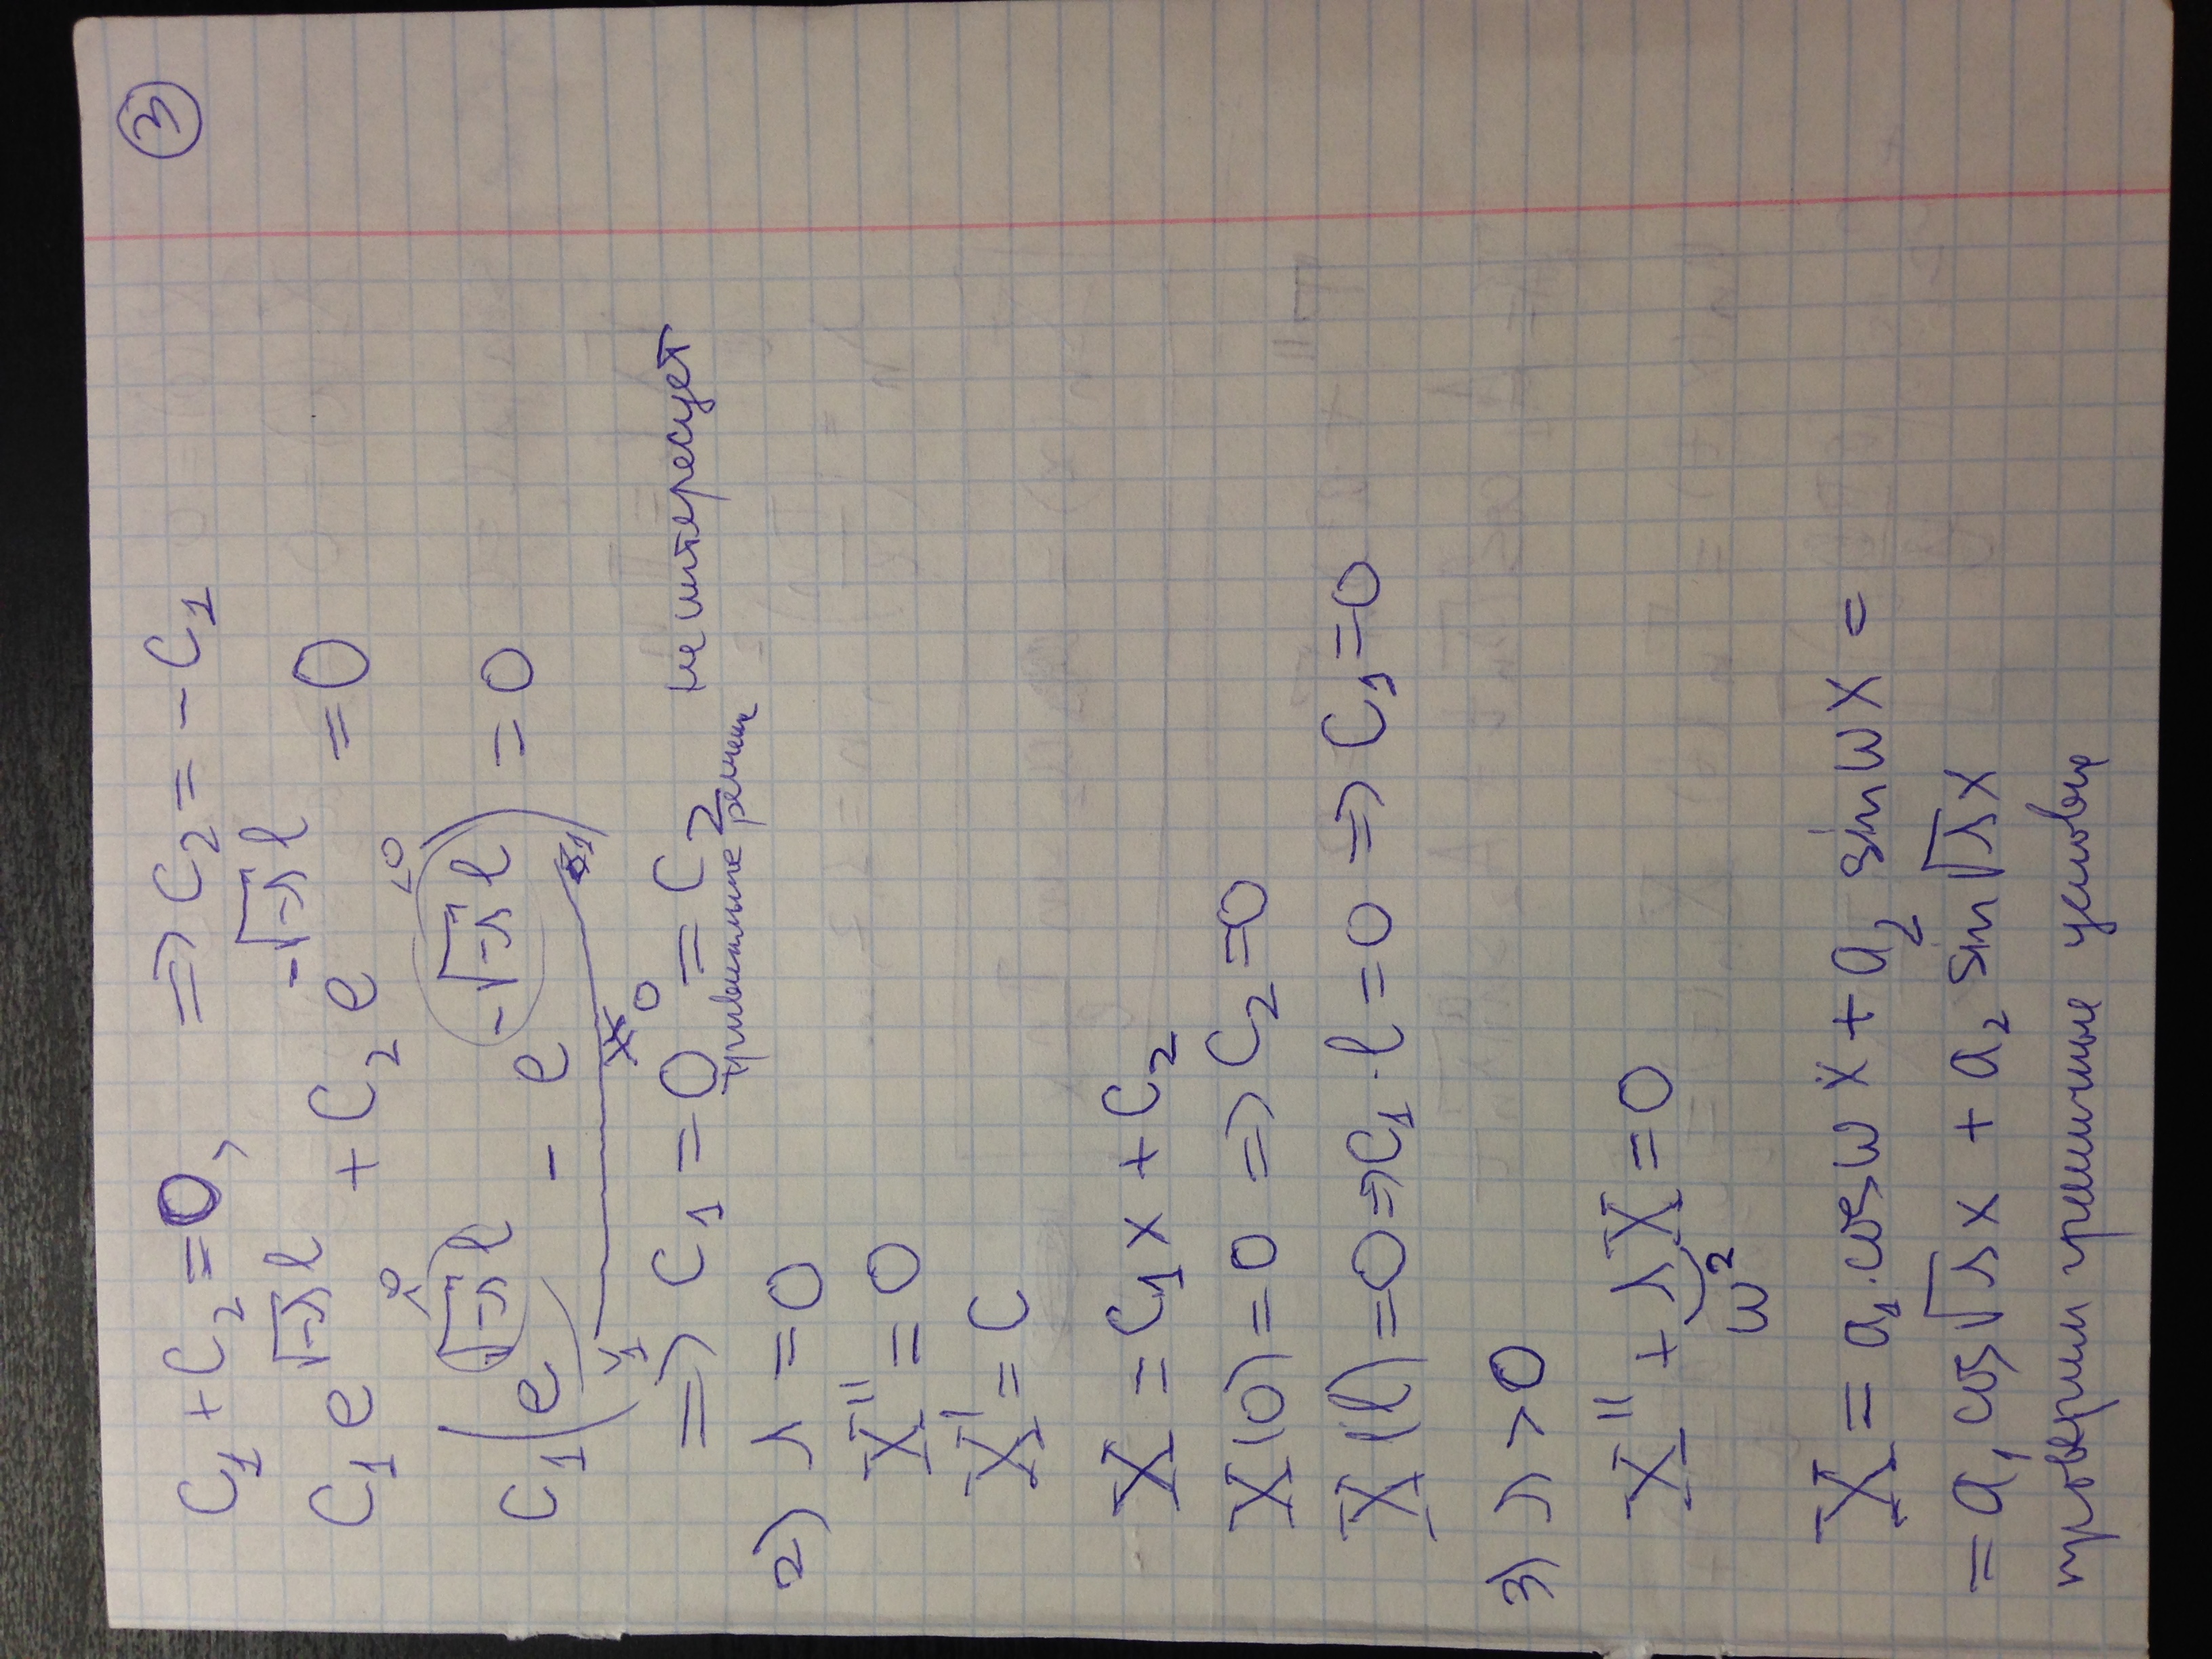 ③
C₁ + C₂ = 0, => C₂ = -C₁
C₁ e^{√-λ l} + C₂ e^{-√-λ l} = 0
>0 <0
C₁ (e^{√-λ l} - e^{-√-λ l}) = 0
>1 <1
≠ 0
=> C₁ = 0 = C₂ не интересует
тривиальное решен
2) λ = 0
X'' = 0
X' = C
X = C₁x + C₂
X(0) = 0 => C₂ = 0
X(l) = 0 => C₁ · l = 0 => C₁ = 0
3) λ > 0
X'' + λX = 0
ω²
X = a₁ · cos ω x + a₂ sin ω x =
= a₁ cos √λ x + a₂ sin √λ x
проверим граничные условия